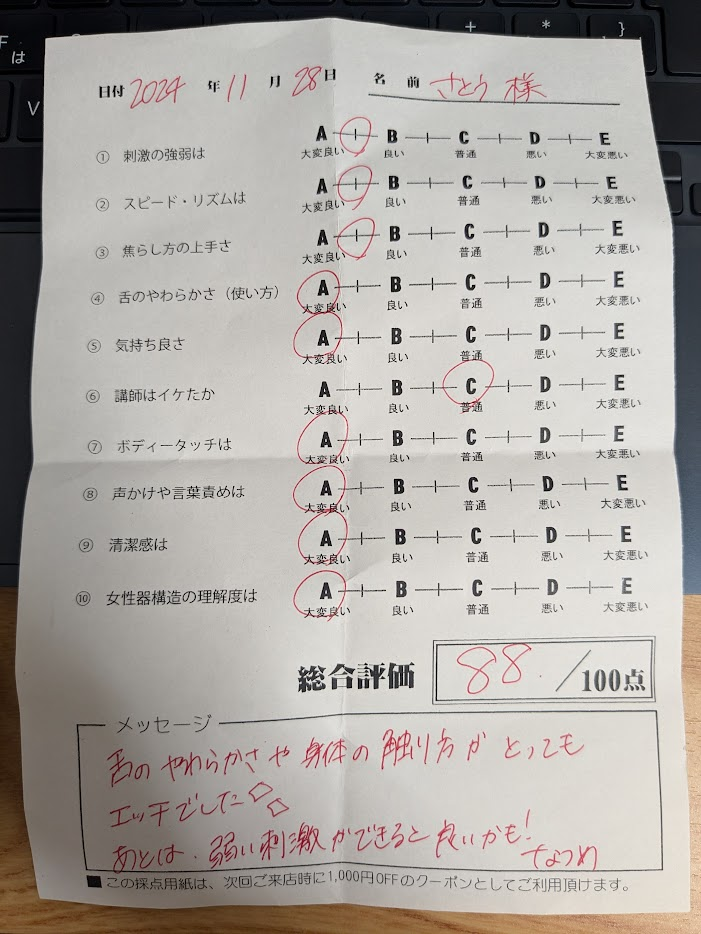 日付 2024 年 11 月 28 日 名前 さとう 様
① 刺激の強弱は A B C D E
大変良い 良い 普通 悪い 大変悪い
② スピード・リズムは A B C D E
大変良い 良い 普通 悪い 大変悪い
③ 焦らし方の上手さ A B C D E
大変良い 良い 普通 悪い 大変悪い
④ 舌のやわらかさ（使い方） A B C D E
大変良い 良い 普通 悪い 大変悪い
⑤ 気持ち良さ A B C D E
大変良い 良い 普通 悪い 大変悪い
⑥ 講師はイケたか A B C D E
大変良い 良い 普通 悪い 大変悪い
⑦ ボディータッチは A B C D E
大変良い 良い 普通 悪い 大変悪い
⑧ 声かけや言葉責めは A B C D E
大変良い 良い 普通 悪い 大変悪い
⑨ 清潔感は A B C D E
大変良い 良い 普通 悪い 大変悪い
⑩ 女性器構造の理解度は A B C D E
大変良い 良い 普通 悪い 大変悪い
総合評価 88. /100点
メッセージ
舌のやわらかさや身体の触り方がとっても
エッチでした♡♡
あとは、弱い刺激ができると良いかも!
なつめ
■この採点用紙は、次回ご来店時に1,000円OFFのクーポンとしてご利用頂けます。